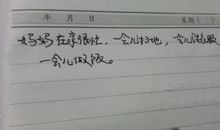 年 月 日 星期
妈妈在家很忙，一会儿扫地，一会儿洗衣服
一会儿做饭。